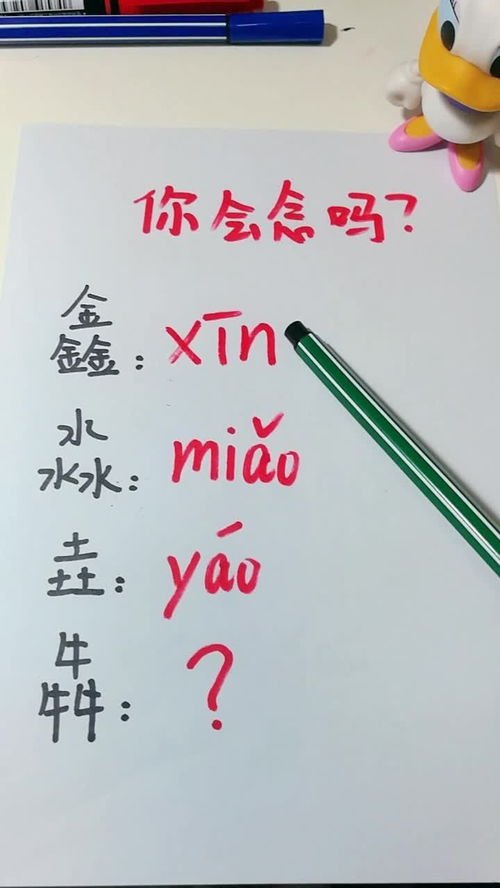 你会念吗?
鑫: xīn
淼: miǎo
垚: yáo
犇: ?